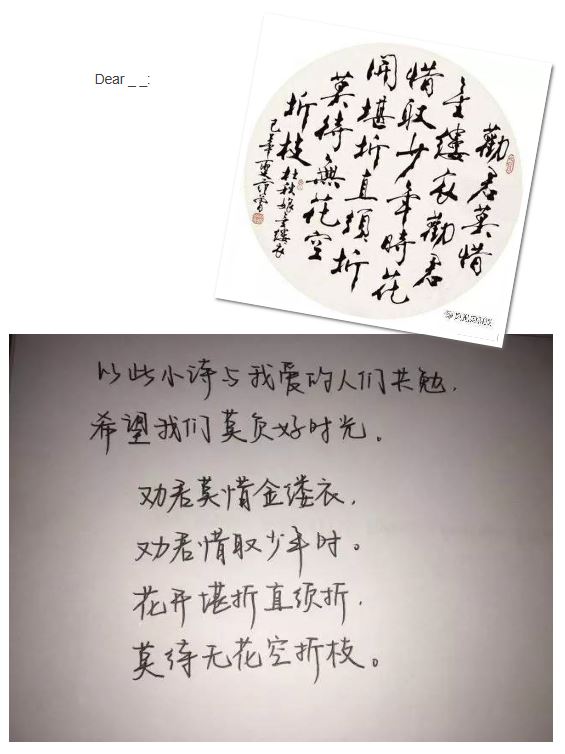 Dear _ _:
勸君莫惜
金縷衣勸君
惜取少年時花
開堪折直須折
莫待無花空
折枝 杜秋娘金縷衣
以此小诗与我爱的人们共勉.
希望我们莫负好时光。
劝君莫惜金缕衣,
劝君惜取少年时。
花开堪折直须折,
莫待无花空折枝。